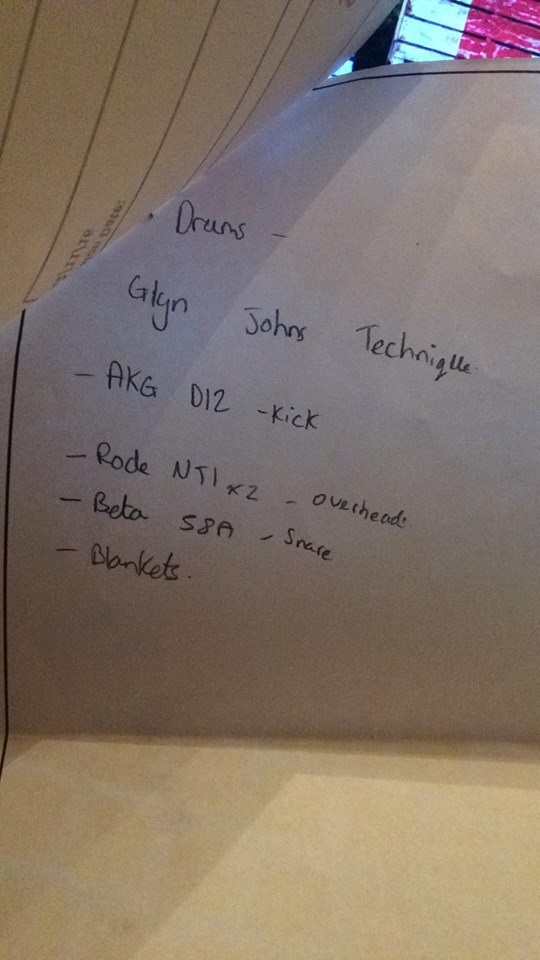 • Drums -
Glyn Johns Technique.
- AKG D12 - Kick
- Rode NT1 x2 - overheads
- Beta 58A - Snare
- Blankets.
Date: